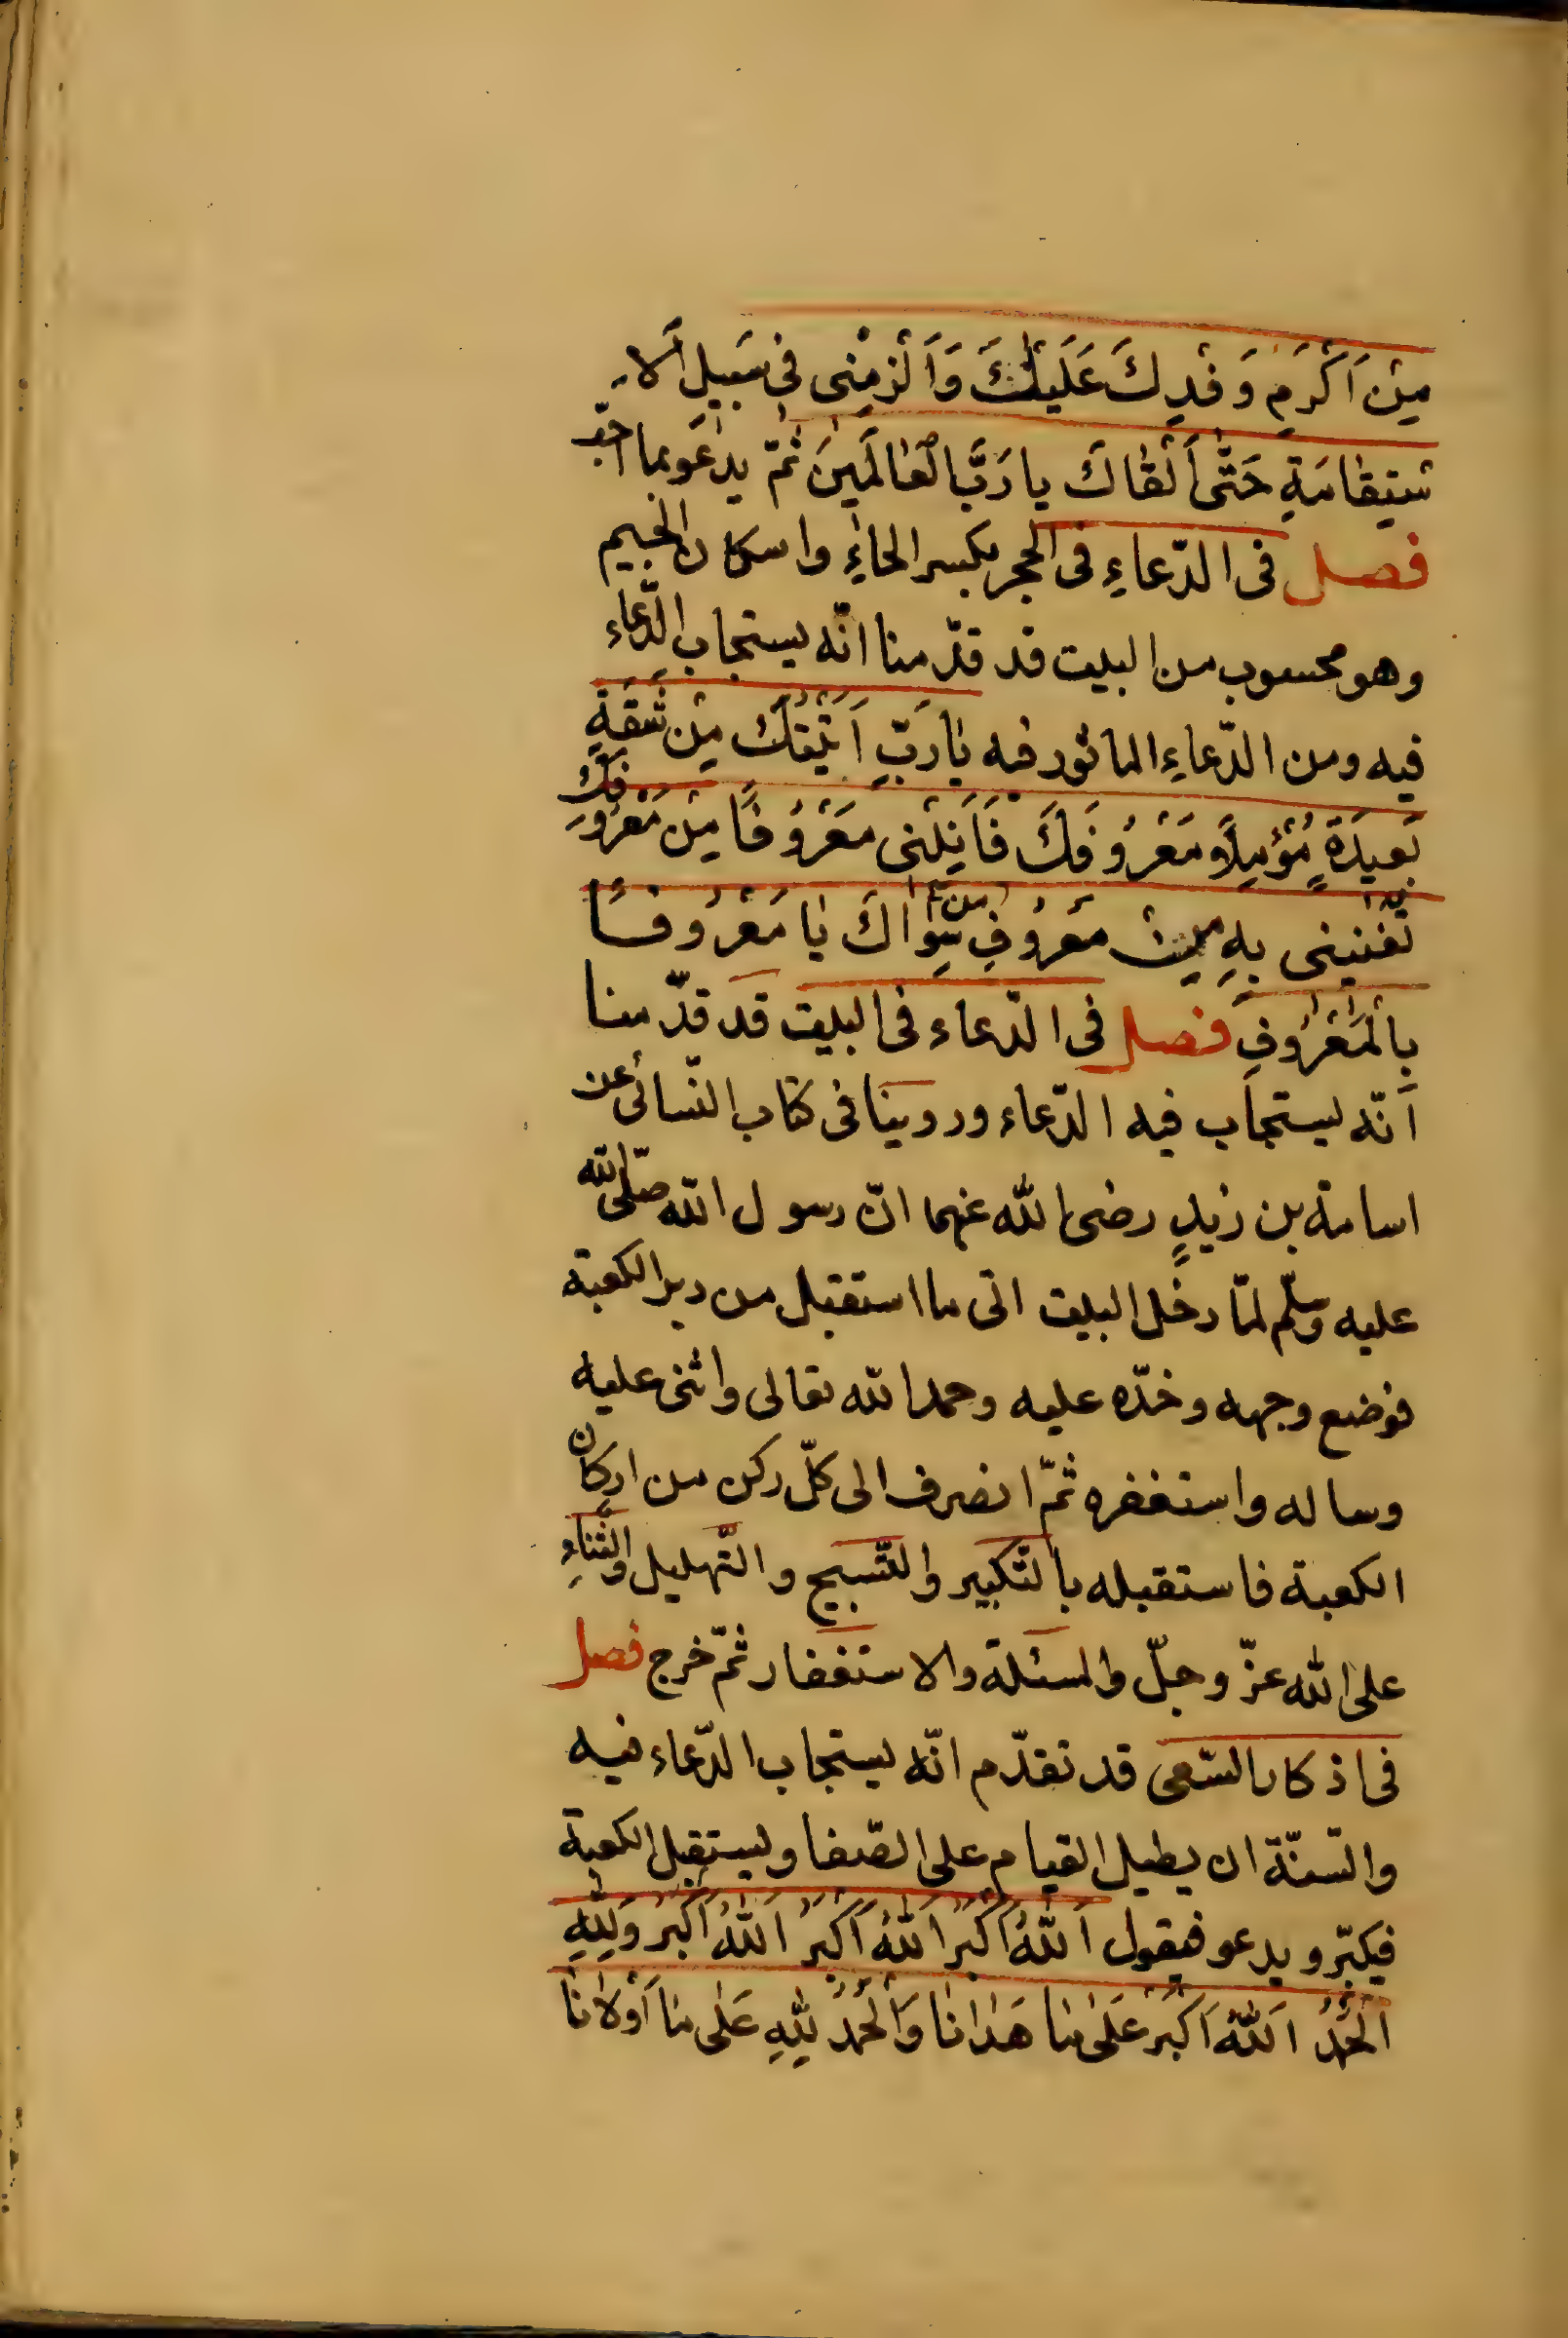 مِنْ اَكْرَمِ وَفْدِكَ عَلَيْكَ وَاَلْزِمْنى فى سَبيلِ اَلا
سْتِقامَةِ حَتّٰى اَلْقاكَ يا رَبَّ الْعالَمينَ ثمّ يدعو بما احبّ
فصل فى الدّعاءِ فى الحجر بكسر الحاءِ واسكان الجيم
وهو محسوب من البيت قد قدّمنا انّه يستجاب الدّعاء
فيه ومن الدّعاءِ الماثور فيه يا رَبِّ اَتَيْتُكَ مِنْ شُقَّةٍ
بَعيدَةٍ مُؤَمِّلاً مَعْرُوفَكَ فَاَنِلْنى مَعْرُوفًا مِنْ مَعْرُوفِكَ
تُغْنينى بِهِ مِنْ مَعْرُوفِ مَنْ سِواكَ يا مَعْرُوفًا
بِالْمَعْرُوفِ فصل فى الدّعاء فى البيت قد قدّمنا
انّه يستجاب فيه الدّعاء وروينا فى كتاب النّسائى عن
اسامة بن زيدٍ رضى الله عنهما انّ رسول الله صلّى الله
عليه وسلّم لمّا دخل البيت اتى ما استقبل من دبر الكعبة
فوضع وجهه وخدّه عليه وحمد الله تعالى واثنى عليه
وساله واستغفره ثمّ انصرف الى كلّ ركن من اركان
الكعبة فاستقبله بالتّكبير والتّسبيح والتّهليل والثّناءِ
على الله عزّ وجلّ والمسئلة والاستغفار ثمّ خرج فصل
فى اذكار السّعى قد تقدّم انّه يستجاب الدّعاء فيه
والسّنّة ان يطيل القيام على الصّفا ويستقبل الكعبة
فيكبّر ويدعو فيقول اَللهُ اَكْبَرُ اَللهُ اَكْبَرُ اَللهُ اَكْبَرُ وَلِلّٰهِ
الْحَمْدُ اَللهُ اَكْبَرُ عَلٰى ما هَدانا وَالْحَمْدُ لِلّٰهِ عَلٰى ما اَوْلانا